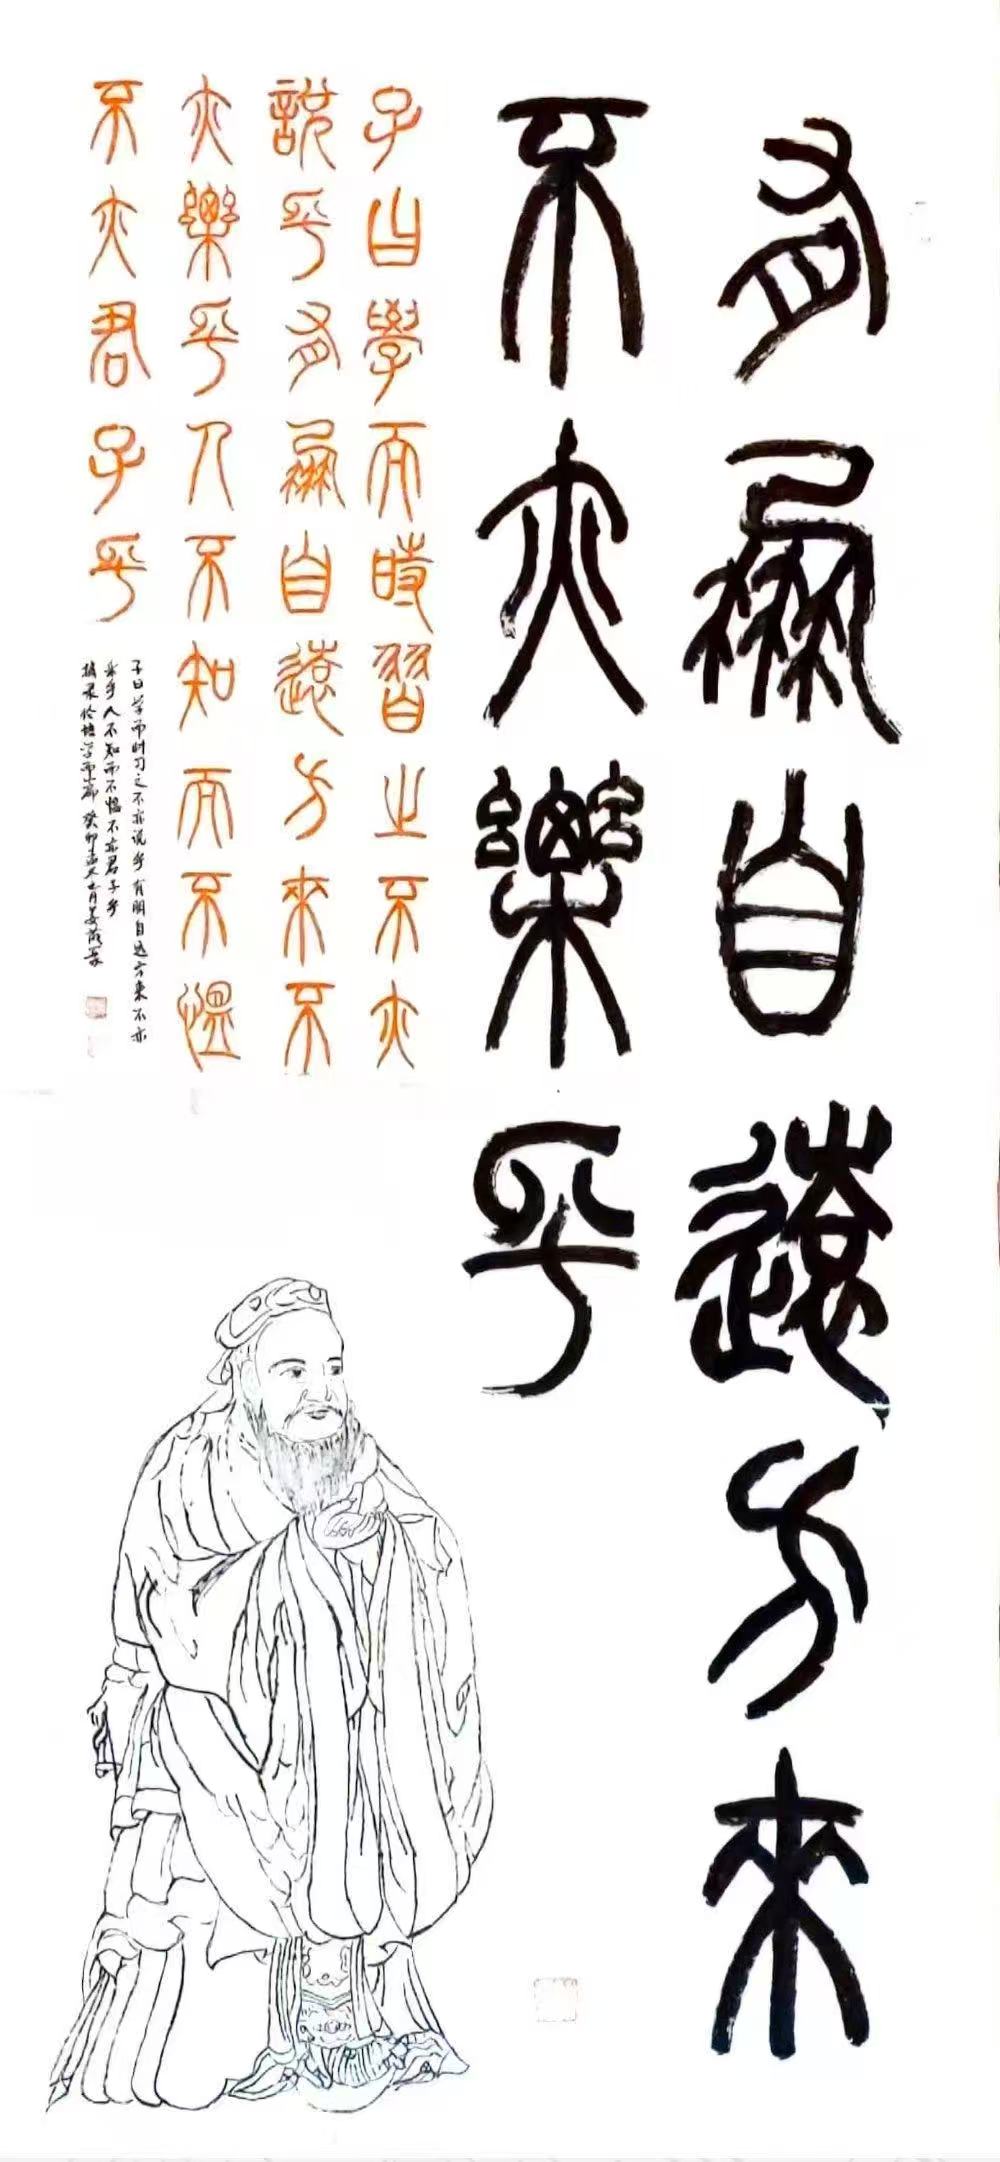 有朋自遠方來
不亦樂乎
子曰學而時習之不亦
說乎有朋自遠方來不
亦樂乎人不知而不慍
不亦君子乎
子曰学而时习之不亦说乎有朋自远方来不亦
乐乎人不知而不愠不亦君子乎
摘录论语学而篇 癸卯孟